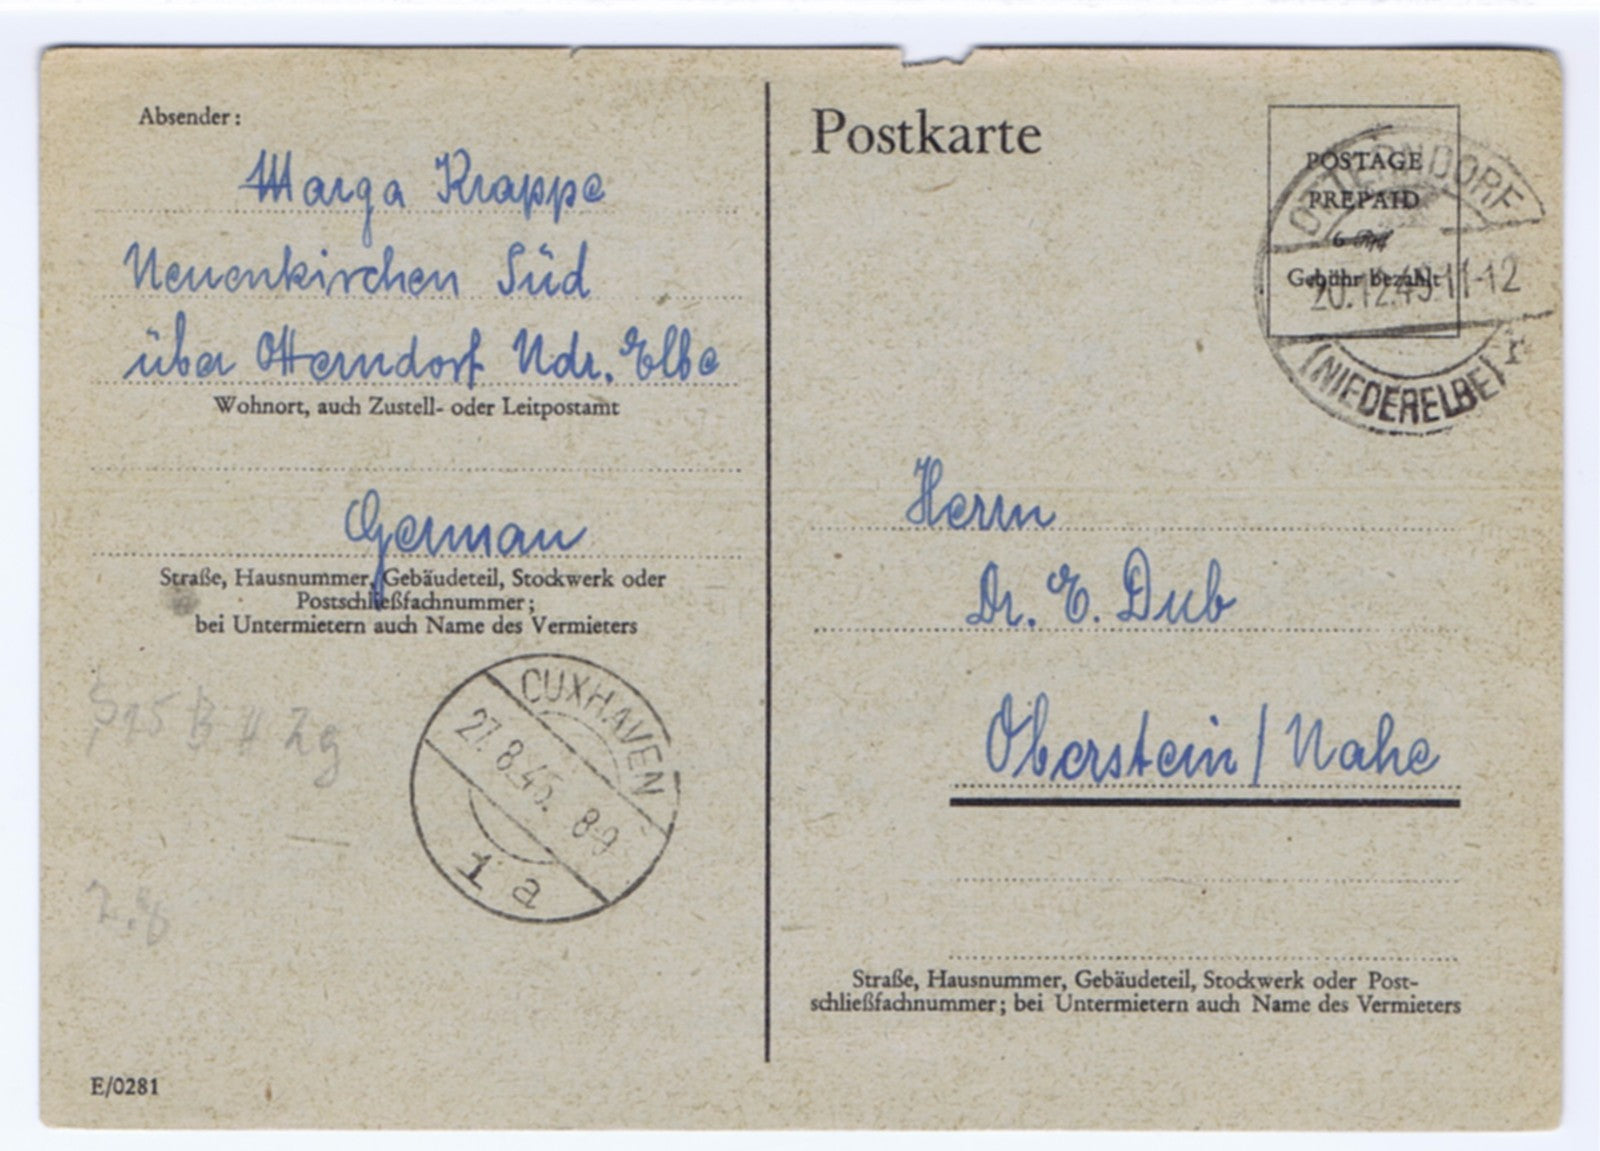 Absender:
Marga Krappe
Neuenkirchen Süd
über Otterndorf Ndr. Elbe
Wohnort, auch Zustell- oder Leitpostamt
German
Straße, Hausnummer, Gebäudeteil, Stockwerk oder
Postschließfachnummer;
bei Untermietern auch Name des Vermieters
CUXHAVEN
27.8.45. 8-9
1 a
E/0281
Postkarte
POSTAGE
PREPAID
6
Gebühr bezahlt
OTTERNDORF
20.12.45 11-12
(NIEDERELBE)
Herrn
Dr. E. Dub
Oberstein/Nahe
Straße, Hausnummer, Gebäudeteil, Stockwerk oder Post-
schließfachnummer; bei Untermietern auch Name des Vermieters